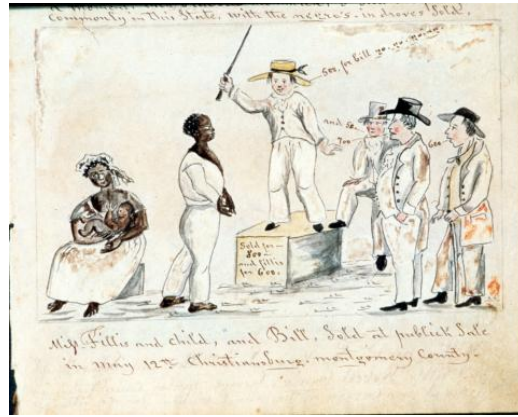 Commonly in This State, with the negro's in droves Sold,
500, for bill go, go, go,
and 50
700
600
Sold for
800
and fillis
for 600.
Miss Fillis and child, and Bill, Sold at publick Sale
in may 12th Christiansburg, montgomery County.